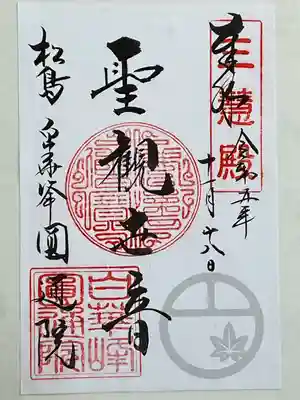 奉拝
三慧殿
令和五年
十一月十八日
聖観世音
松島 白華峰圓通院
白華峰
圓通院